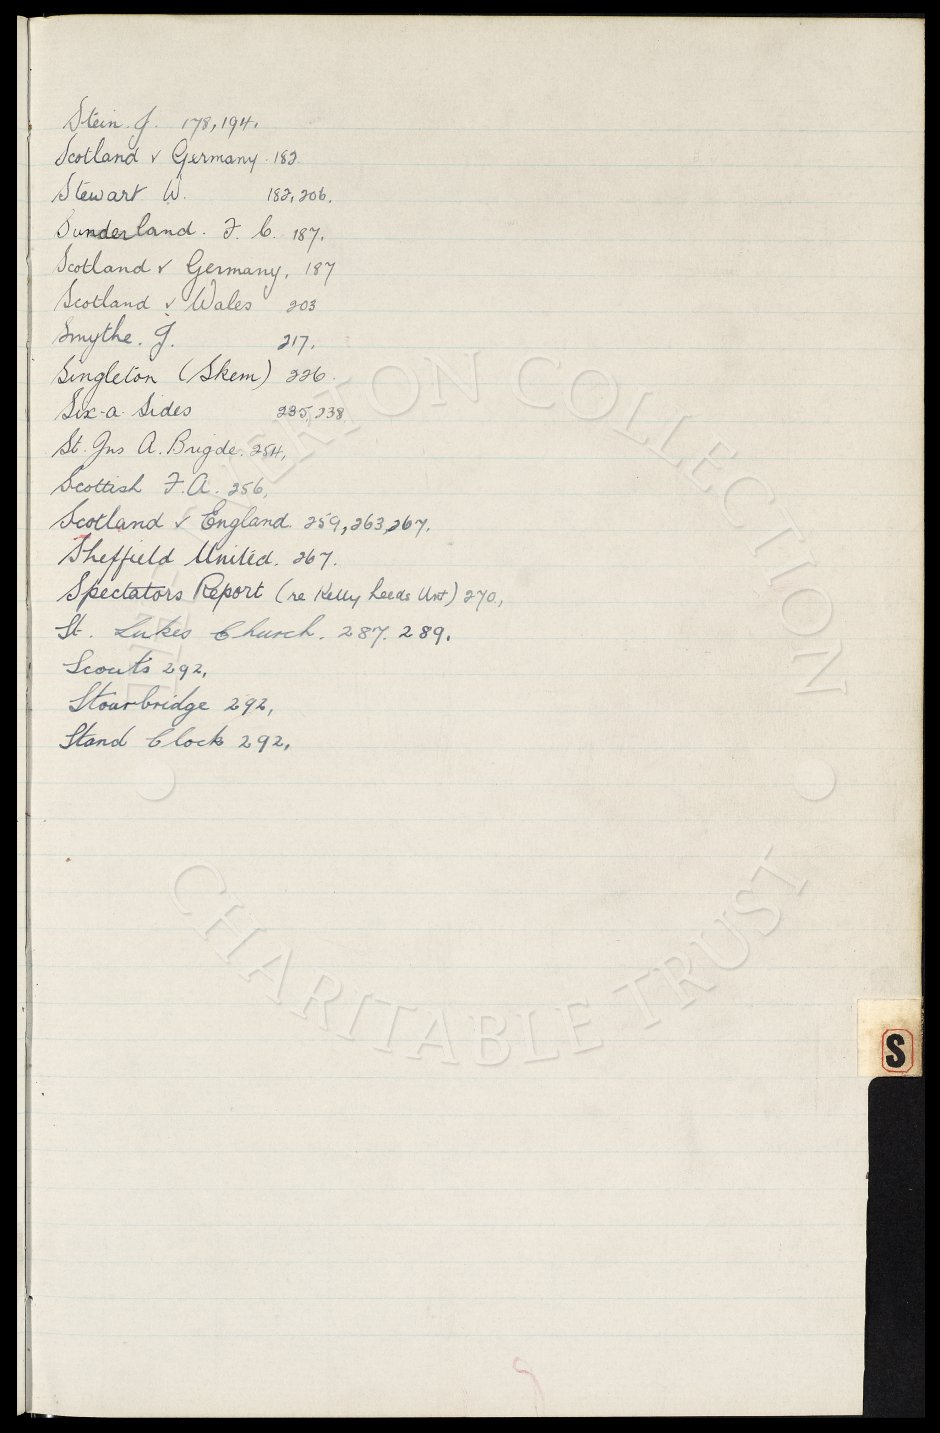 Stein. J. 178, 194.
Scotland v Germany. 182
Stewart W. 182, 206.
Sunderland. F. C. 187.
Scotland v Germany, 187
Scotland v Wales 203
Smythe. J. 217.
Singleton (Skem) 226.
Six-a-Sides 235, 238
St. Jns A. Brigde. 254,
Scottish F.A. 256,
Scotland v England. 259, 263, 267.
Sheffield United. 267.
Spectators Report (re Kelly Leeds Unt) 270,
St. Lukes Church. 287. 289.
Scouts 292,
Stourbridge 292,
Stand Clock 292,
S
THE EVERTON COLLECTION
CHARITABLE TRUST